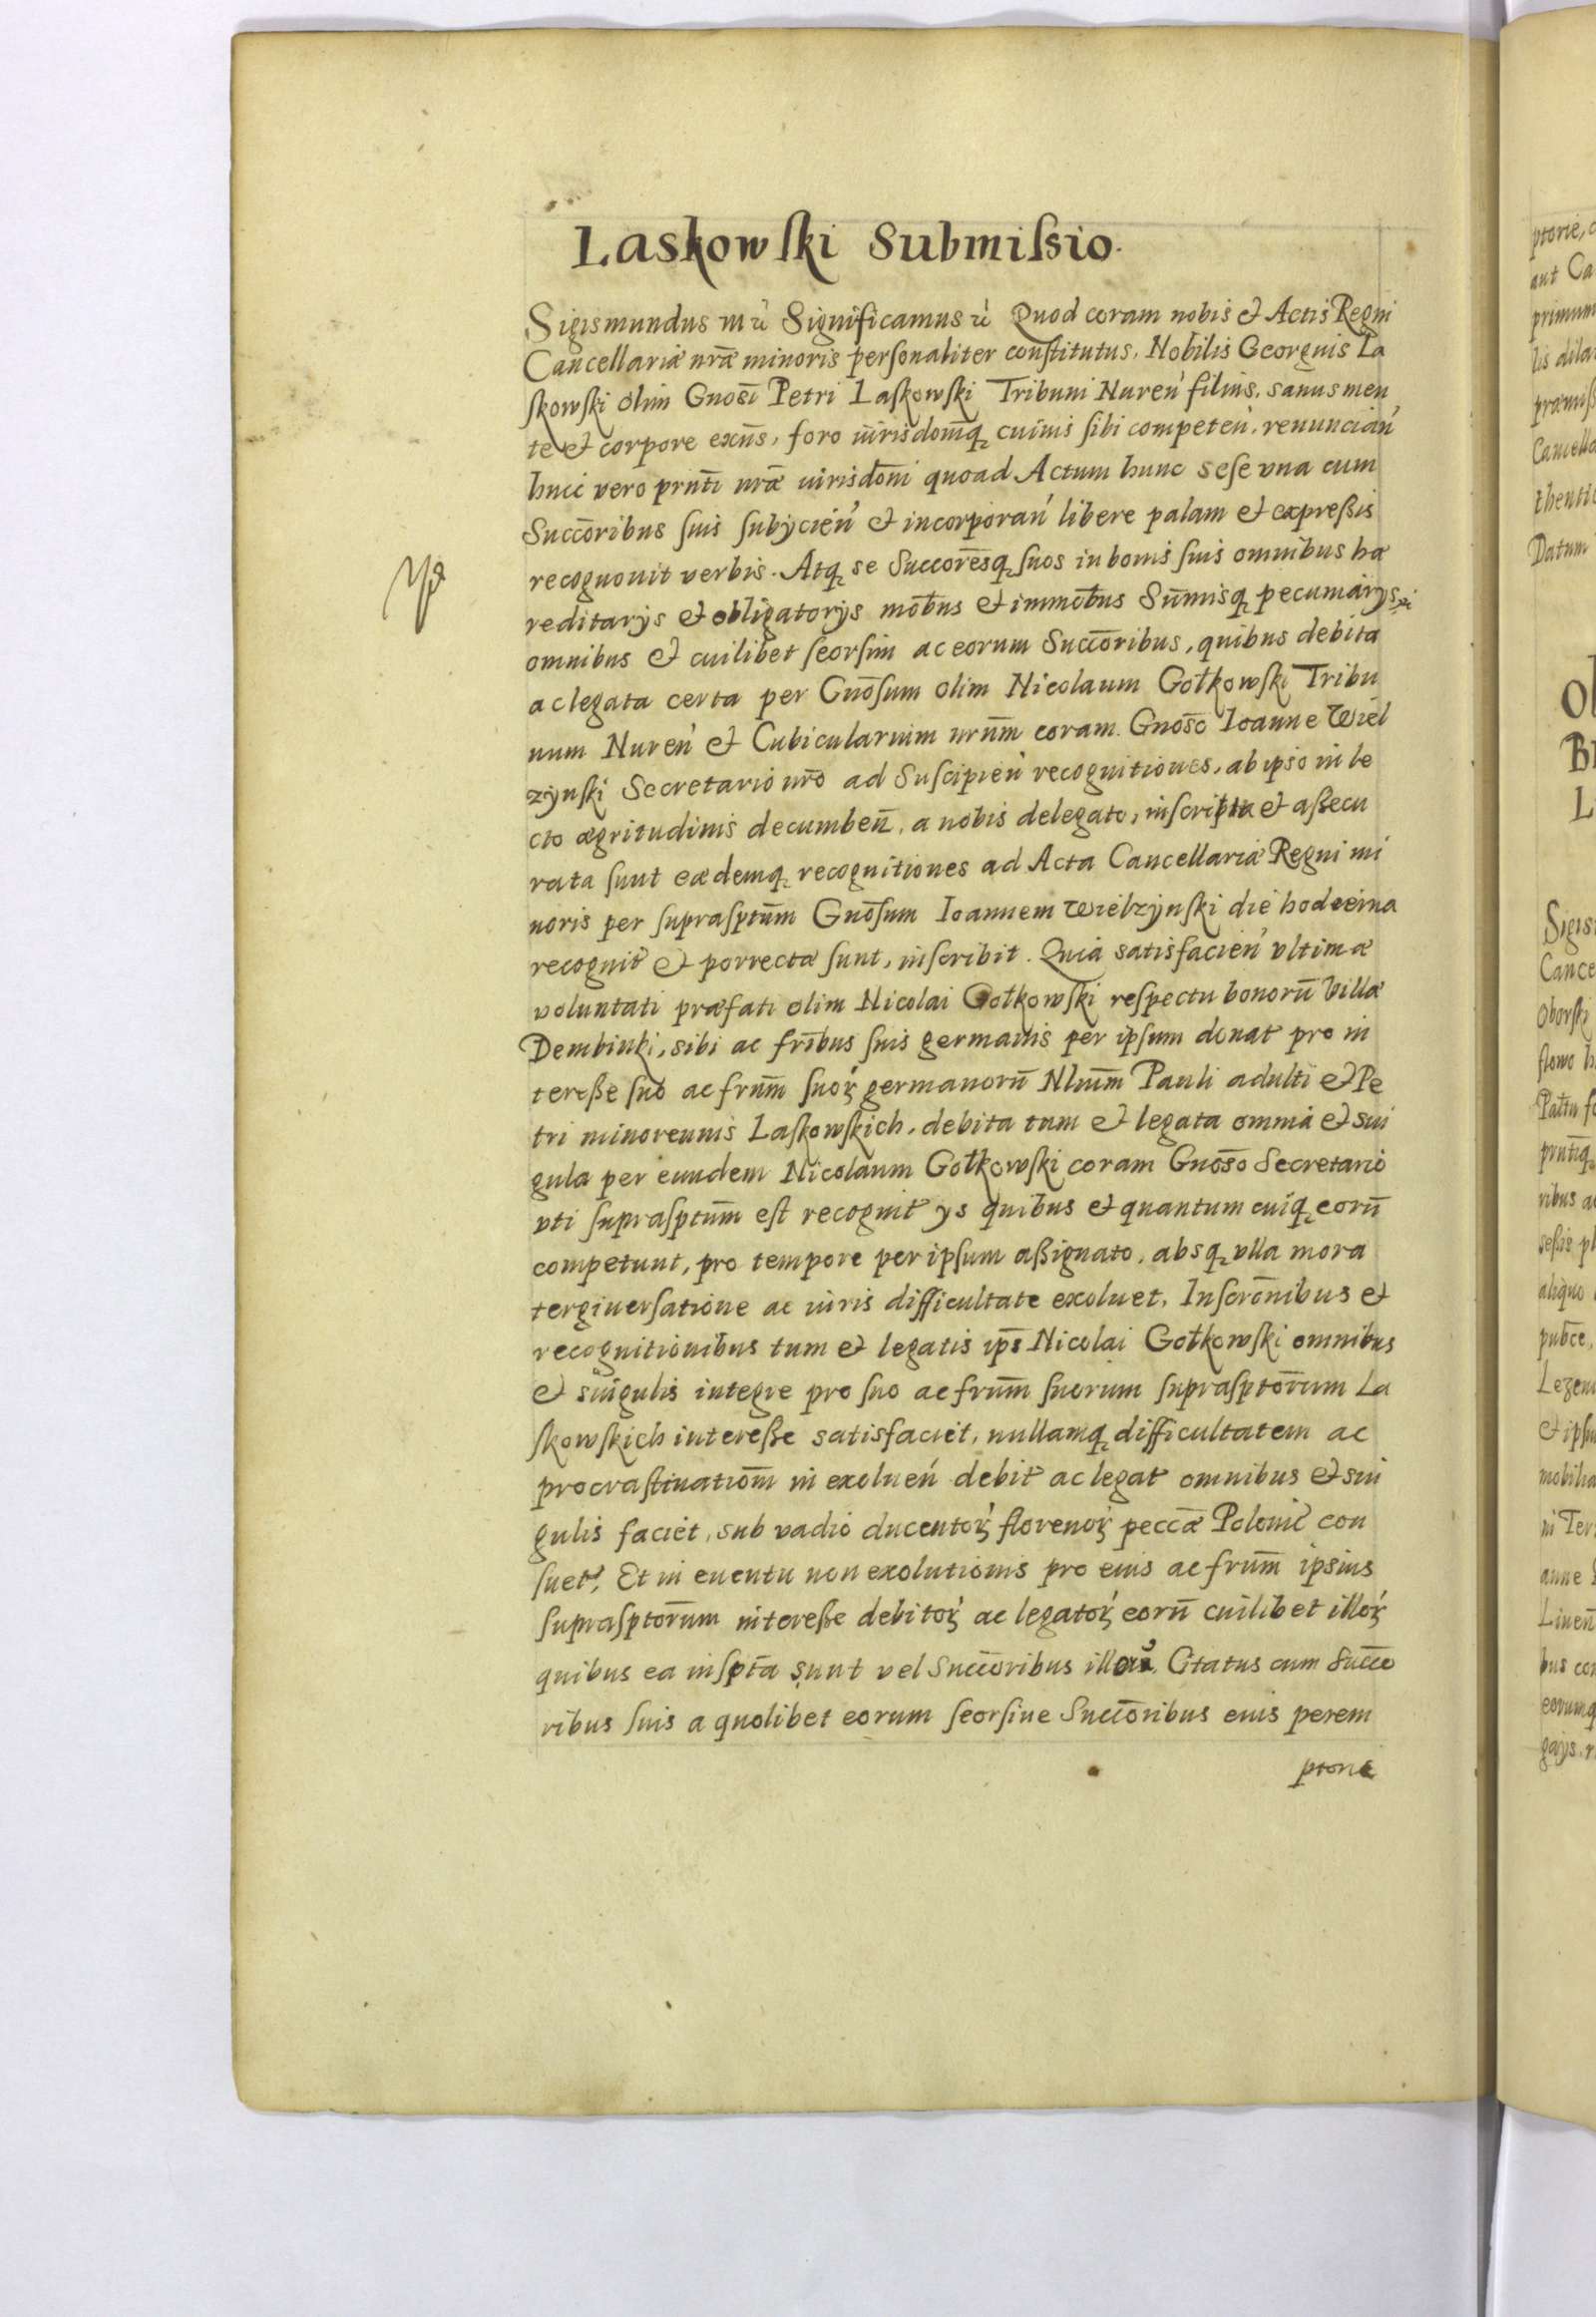 Laskowſki Submiſsio.
Sigismundus III ꝛć Significamus ꝛć Quod coram nobis et Actis Regni
Cancellariæ nr̃æ minoris perſonaliter conſtitutus, Nobilis Georgius La
ſkowſki olim Gnosi Petri Laſkowſki Tribuni Nureń filius, sanus men
te et corpore exn̄s, foro iurisdom̃q cuiuis ſibi competeń, renunciań
huic vero prnti nræ iurisdoni quoad Actum hunc seſe vna cum
Succoribus ſuis ſubijcień et incorporań libere palam et expreßis
recognouit verbis. Atq se Succoresq ſuos in bonis ſuis omnibus hæ
reditarijs et obligatorijs mobus et immobus Sum̃isq pecuniarijs
omnibus et cuilibet ſeorſim ac eorum Succoribus, quibus debita
ac legata certa per Gnoſum olim Nicolaum Gołkowſki Tribu
num Nureń et Cubicularium nrum coram Gnoso Ioanne Wiel
zynſki Secretario nro ad Suſcipień recognitiones, ab ipso in le
cto ægritudinis decumbeń, a nobis delegato, inſcripta et aſſecu
rata ſunt eædemq recognitiones ad Acta Cancellariæ Regni mi
noris per ſupraſptum Gnoſum Ioannem Wielzynſki die hodierna
recognit et porrectæ ſunt, inſcribit. Quia satisfacień vltimæ
voluntati præfati olim Nicolai Gołkowſki reſpectu bonorū Villæ
Dembinki, sibi ac fribus ſuis germanis per ipſum donat pro in
tereße ſuo ac frum ſuoꝝ germanorū Nlium Pauli adulti et Pe
tri minorennis Laſkowſkich, debita tum et legata omnia et sin
gula per eundem Nicolaum Gołkowſki coram Gnoso Secretario
vti ſupraſptum eſt recognit ijs quibus et quantum cuiq eorū
competunt, pro tempore per ipſum aßignato, absq vlla mora
tergiuerſatione ac iuris difficultate exoluet, Inſcronibus et
recognitionibus tum et legatis ips Nicolai Gołkowſki omnibus
et singulis integre pro ſuo ac frum ſuorum ſupraſptorum La
ſkowſkich intereße satisfaciet, nullamq difficultatem ac
procraſtinationm in exolueń debit ac legat omnibus et sin
gulis faciet, sub vadio ducentoꝝ florenoꝝ peccæ Polonic con
ſuet, Et in euentu non exolutionis pro eius ac frum ipsius
ſupraſptorum intereße debitoꝝ ac legatoꝝ eorū cuilibet illoꝝ
quibus ea inſpta sunt vel Succoribus illoꝝ. Citatus cum Succo
ribus ſuis a quolibet eorum ſeorſiue Succoribus eius perem
ptorie